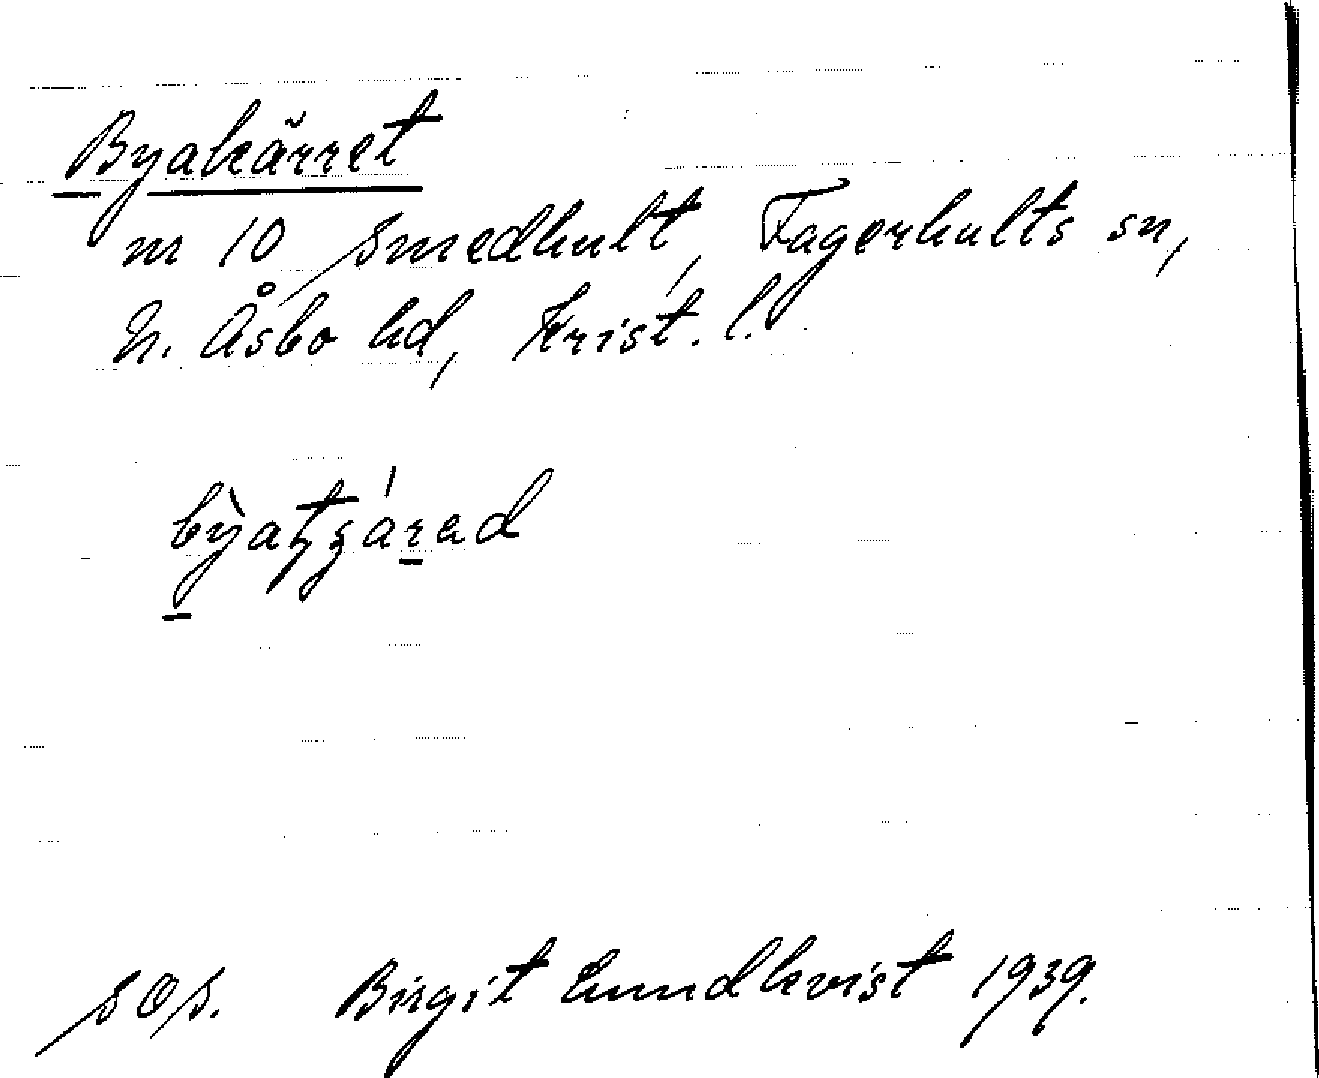 Byakärret
m 10 Smedhult, Fagerhults sn,
N. Åsbo hd, Krist. l.
SOS. Birgit Lundkvist 1939.